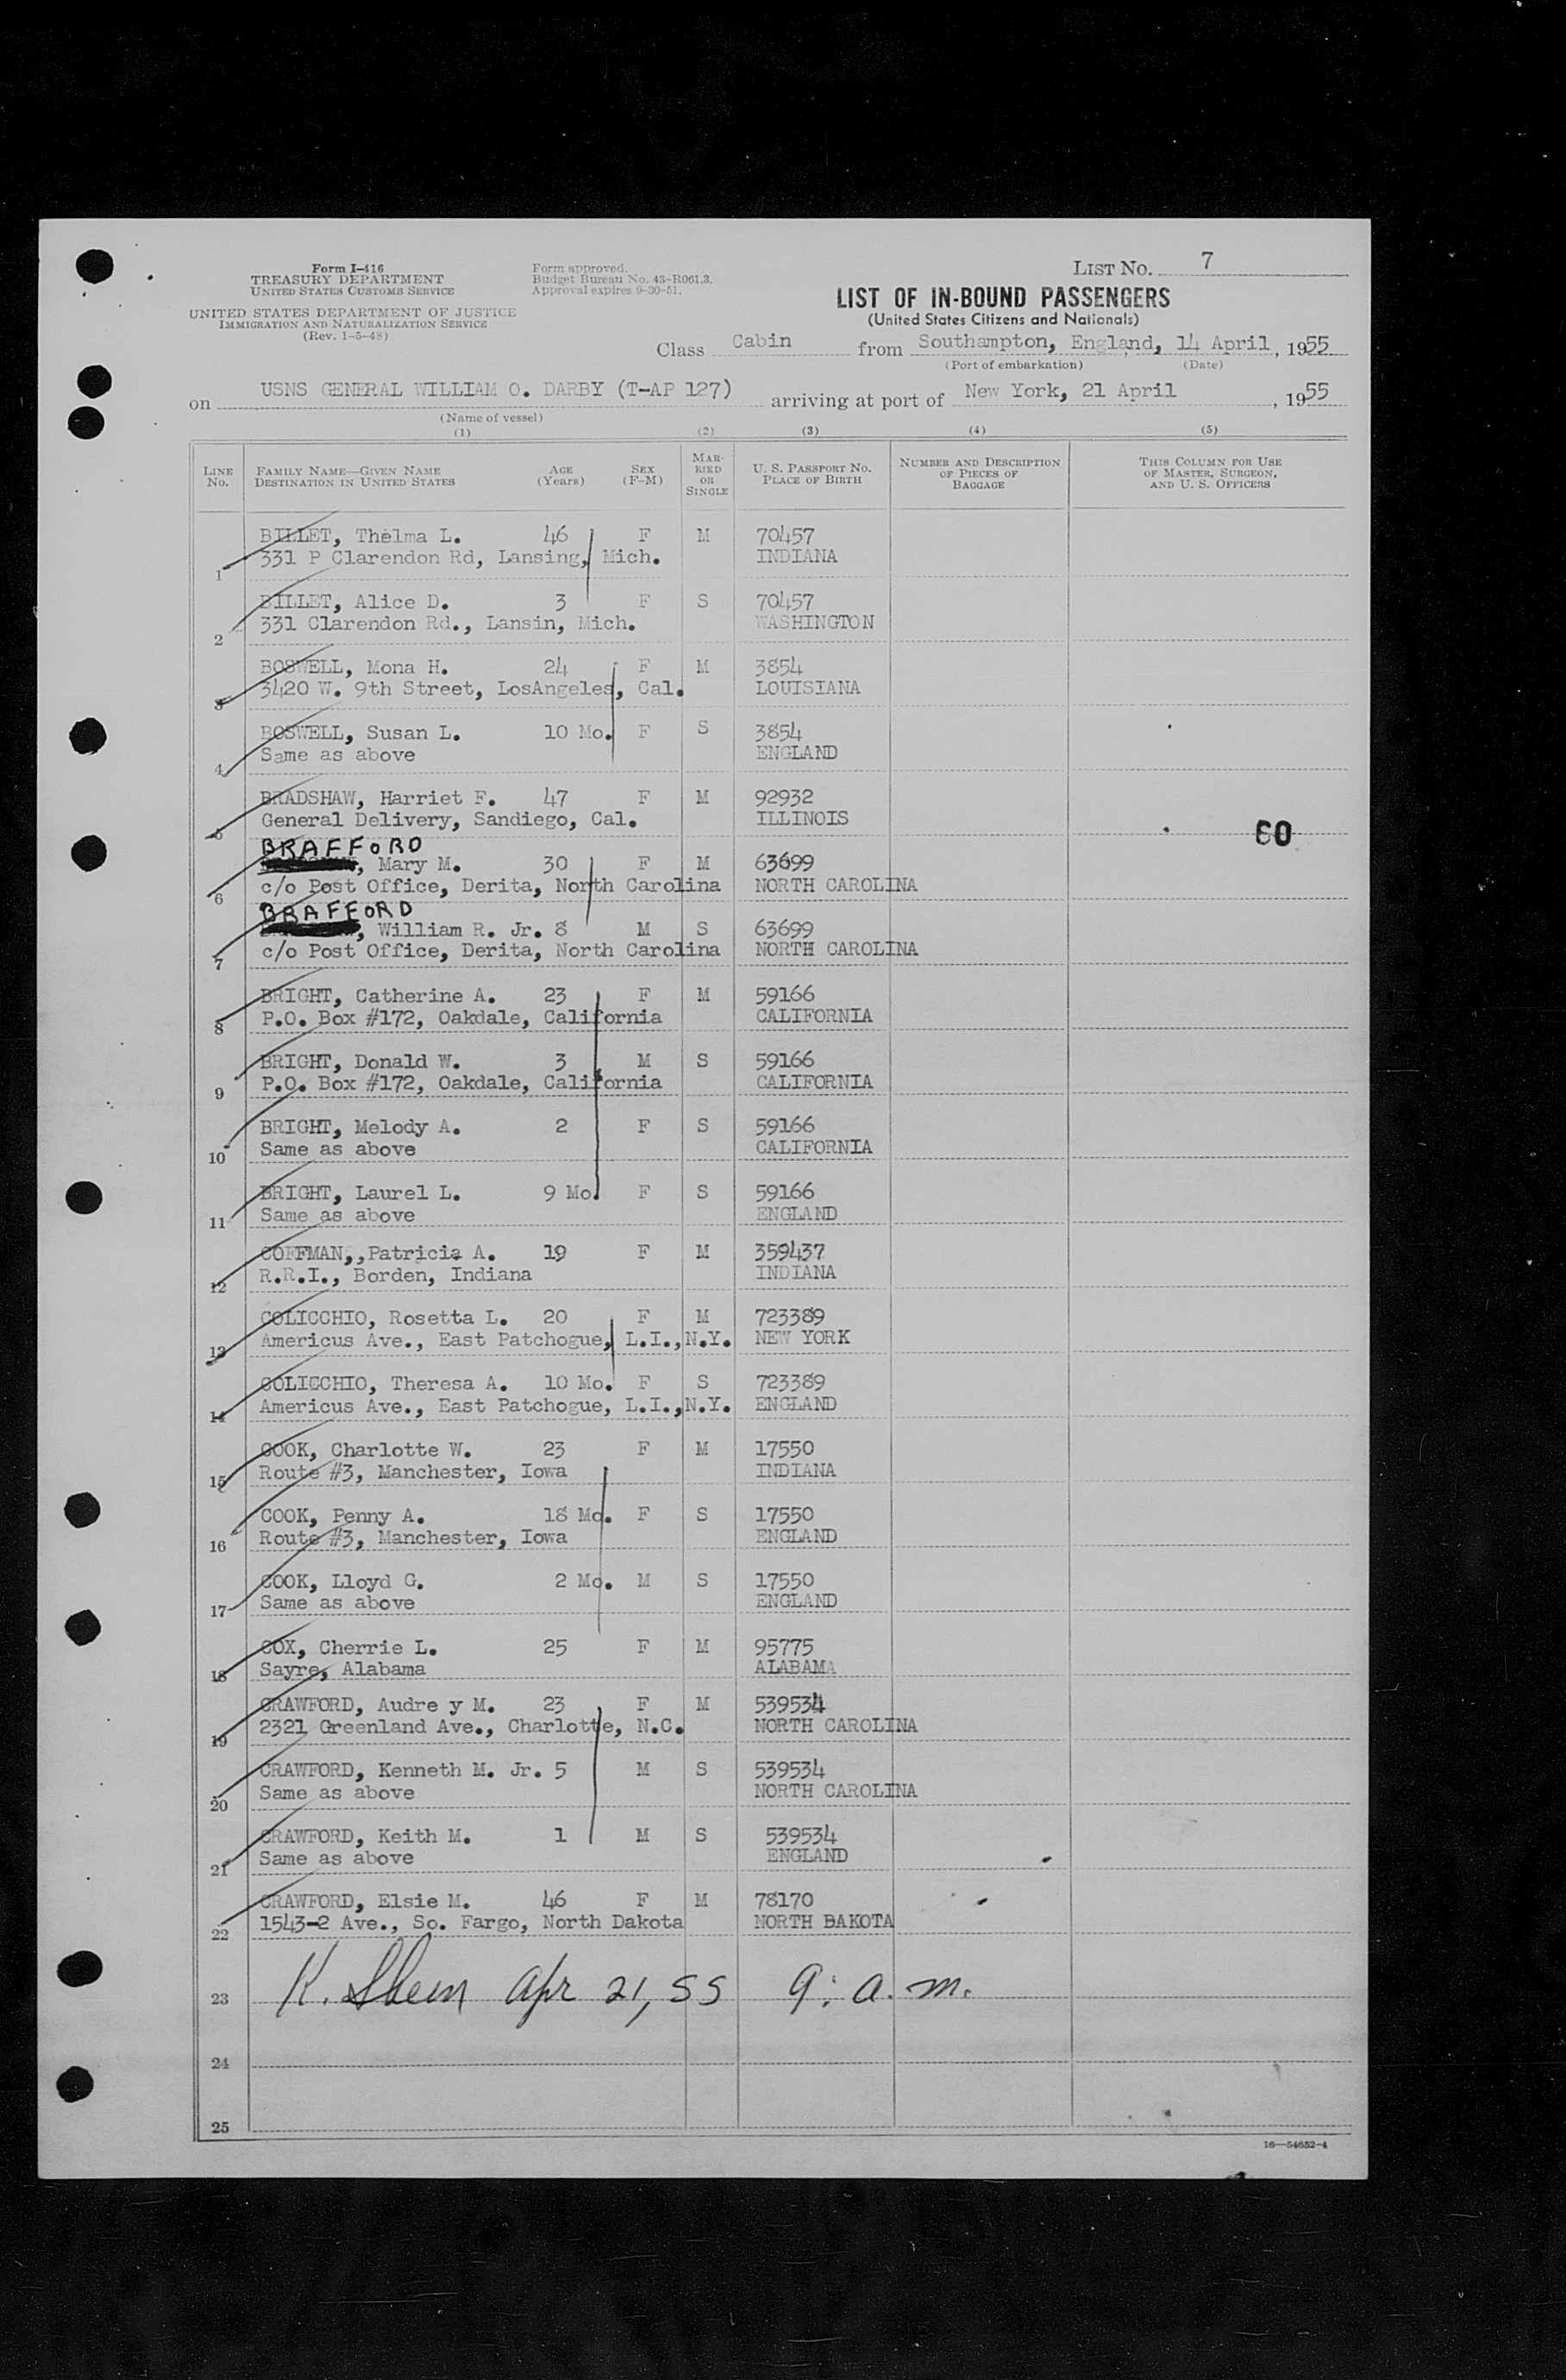 Form I-416
TREASURY DEPARTMENT
UNITED STATES CUSTOMS SERVICE
UNITED STATES DEPARTMENT OF JUSTICE
IMMIGRATION AND NATURALIZATION SERVICE
(Rev. 1-5-48)
Form approved.
Budget Bureau No. 43-R061.3.
Approval expires 9-30-51.
LIST NO. 7
LIST OF IN-BOUND PASSENGERS
(United States Citizens and Nationals)
Class Cabin from Southampton, England, 14 April, 1955
(Port of embarkation) (Date)
on USNS GENERAL WILLIAM O. DARBY (T-AP 127) arriving at port of New York, 21 April, 1955
(Name of vessel)
(1) (2) (3) (4) (5)
LINE NO. FAMILY NAME—GIVEN NAME DESTINATION IN UNITED STATES AGE (Years) SEX (F-M) MARRIED OR SINGLE U. S. PASSPORT NO. PLACE OF BIRTH NUMBER AND DESCRIPTION OF PIECES OF BAGGAGE THIS COLUMN FOR USE OF MASTER, SURGEON, AND U. S. OFFICERS
BILLET, Thelma L. 46 F M 70457
1 331 P Clarendon Rd, Lansing, Mich. INDIANA
BILLET, Alice D. 3 F S 70457
2 331 Clarendon Rd., Lansin, Mich. WASHINGTON
BOSWELL, Mona H. 24 F M 3854
3 3420 W. 9th Street, LosAngeles, Cal. LOUISIANA
BOSWELL, Susan L. 10 Mo. F S 3854
4 Same as above ENGLAND
BRADSHAW, Harriet F. 47 F M 92932
5 General Delivery, Sandiego, Cal. ILLINOIS
60
BRAFFORD
, Mary M. 30 F M 63699
6 c/o Post Office, Derita, North Carolina NORTH CAROLINA
BRAFFORD
, William R. Jr. 8 M S 63699
7 c/o Post Office, Derita, North Carolina NORTH CAROLINA
BRIGHT, Catherine A. 23 F M 59166
8 P.O. Box #172, Oakdale, California CALIFORNIA
BRIGHT, Donald W. 3 M S 59166
9 P.O. Box #172, Oakdale, California CALIFORNIA
BRIGHT, Melody A. 2 F S 59166
10 Same as above CALIFORNIA
BRIGHT, Laurel L. 9 Mo. F S 59166
11 Same as above ENGLAND
COFFMAN,,Patricia A. 19 F M 359437
12 R.R.I., Borden, Indiana INDIANA
COLICCHIO, Rosetta L. 20 F M 723389
13 Americus Ave., East Patchogue, L.I.,N.Y. NEW YORK
COLICCHIO, Theresa A. 10 Mo. F S 723389
14 Americus Ave., East Patchogue, L.I.,N.Y. ENGLAND
COOK, Charlotte W. 23 F M 17550
15 Route #3, Manchester, Iowa INDIANA
COOK, Penny A. 18 Mo. F S 17550
16 Route #3, Manchester, Iowa ENGLAND
COOK, Lloyd G. 2 Mo. M S 17550
17 Same as above ENGLAND
COX, Cherrie L. 25 F M 95775
18 Sayre, Alabama ALABAMA
CRAWFORD, Audre y M. 23 F M 539534
19 2321 Greenland Ave., Charlotte, N.C. NORTH CAROLINA
CRAWFORD, Kenneth M. Jr. 5 M S 539534
20 Same as above NORTH CAROLINA
CRAWFORD, Keith M. 1 M S 539534
21 Same as above ENGLAND
CRAWFORD, Elsie M. 46 F M 78170
22 1543-2 Ave., So. Fargo, North Dakota NORTH DAKOTA
23 K. Shem Apr 21, 55 9: a. m.
24
25
16—54652-4